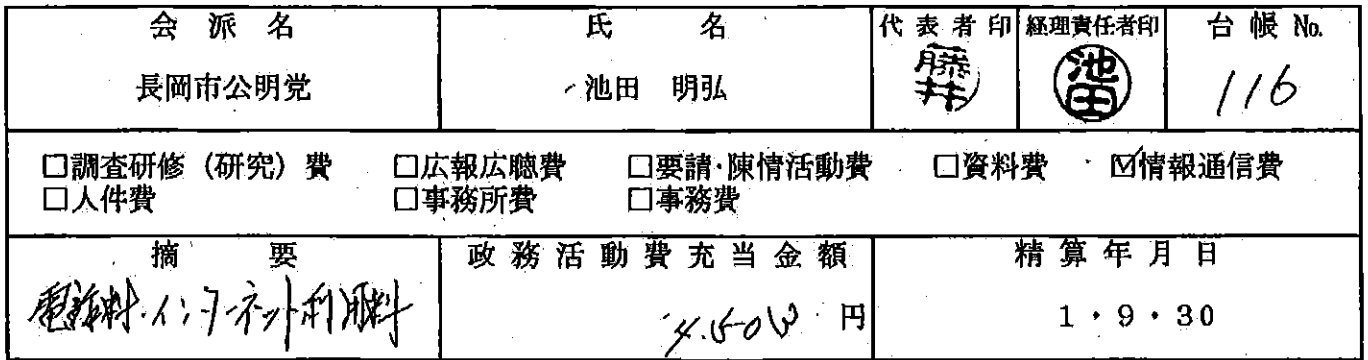 会派名 氏名 代表者印 経理責任者印 台帳 No.
長岡市公明党 池田 明弘 藤井 池田 116
□調査研修（研究）費 □広報広聴費 □要請・陳情活動費 □資料費 ☑情報通信費
□人件費 □事務所費 □事務費
摘要 政務活動費充当金額 精算年月日
電話料・インターネット利用料 円 1・9・30